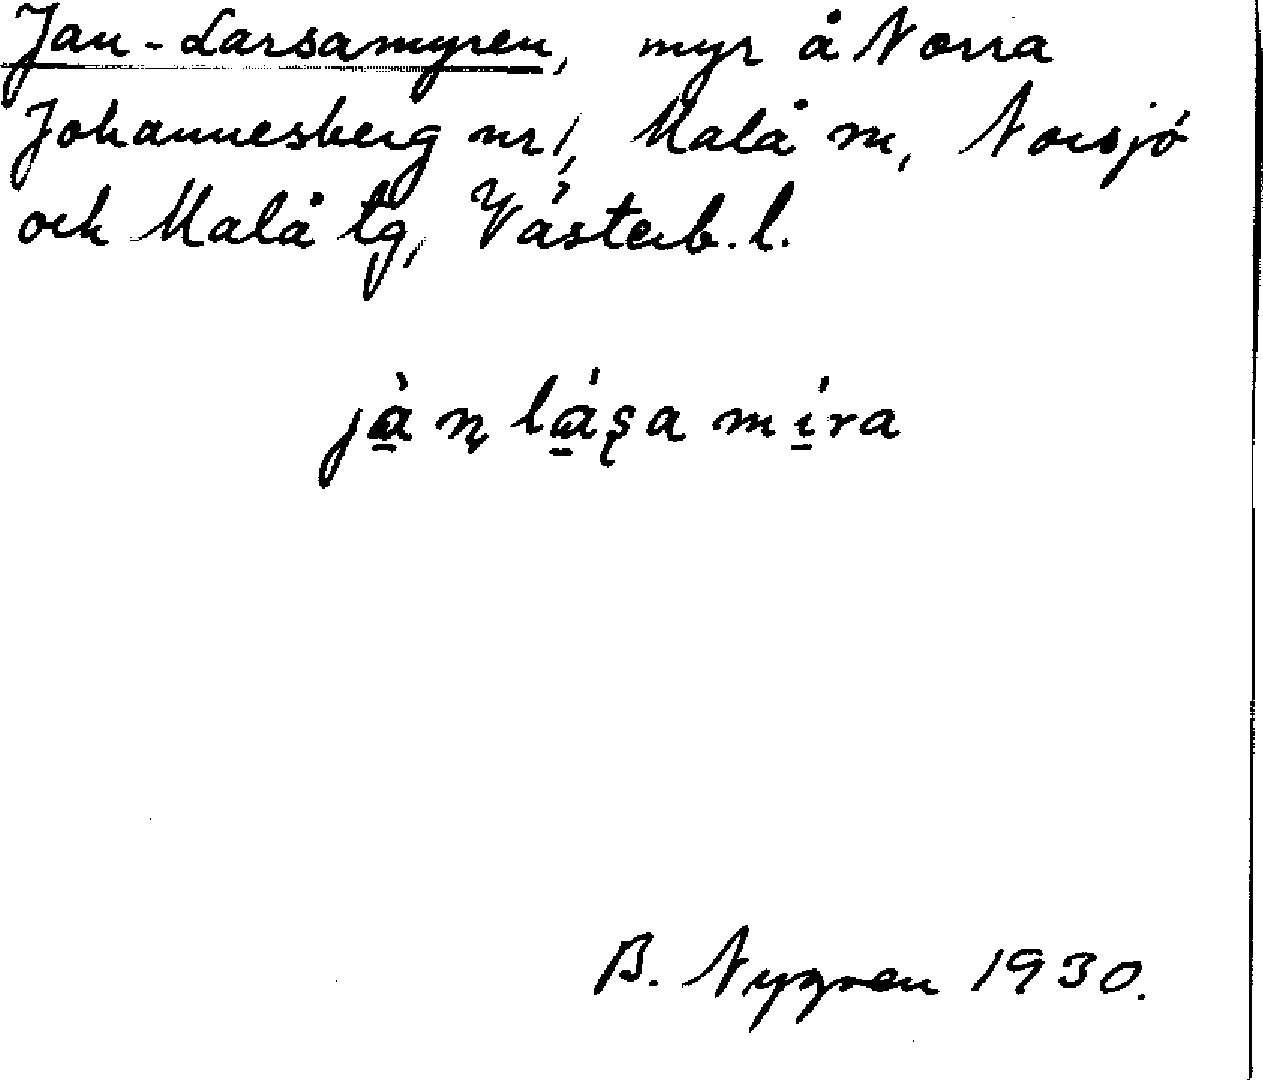 Jan-Larsamyren, myr å Norra
Johannesberg nr 1, Malå sn, Norsjö
och Malå tg, Västerb. l.
jà̱ ņ lá̱ʂa mí̱ra
B. Nygren 1930.